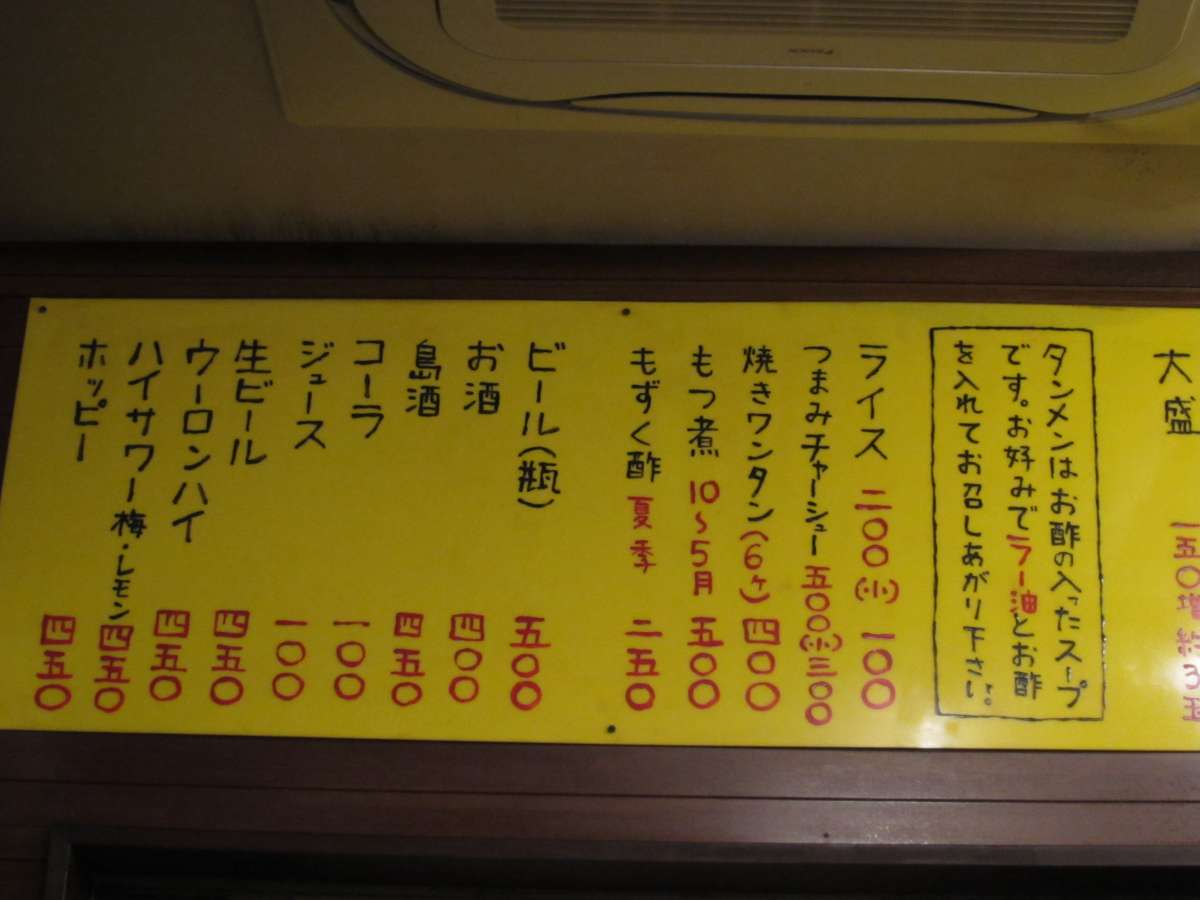 DAIKIN
大盛 一五〇
タンメンはお酢の入ったスープ
です。お好みでラー油とお酢
を入れてお召しあがり下さい。
ライス 二〇〇(小)一〇〇
つまみチャーシュー 五〇〇(小)三〇〇
焼きワンタン(6ヶ) 四〇〇
もつ煮 10~5月 五〇〇
もずく酢 夏季 二五〇
ビール(瓶) 五〇〇
お酒 四〇〇
島酒 四五〇
コーラ 一〇〇
ジュース 一〇〇
生ビール 四五〇
ウーロンハイ 四五〇
ハイサワー梅・レモン 四五〇
ホッピー 四五〇